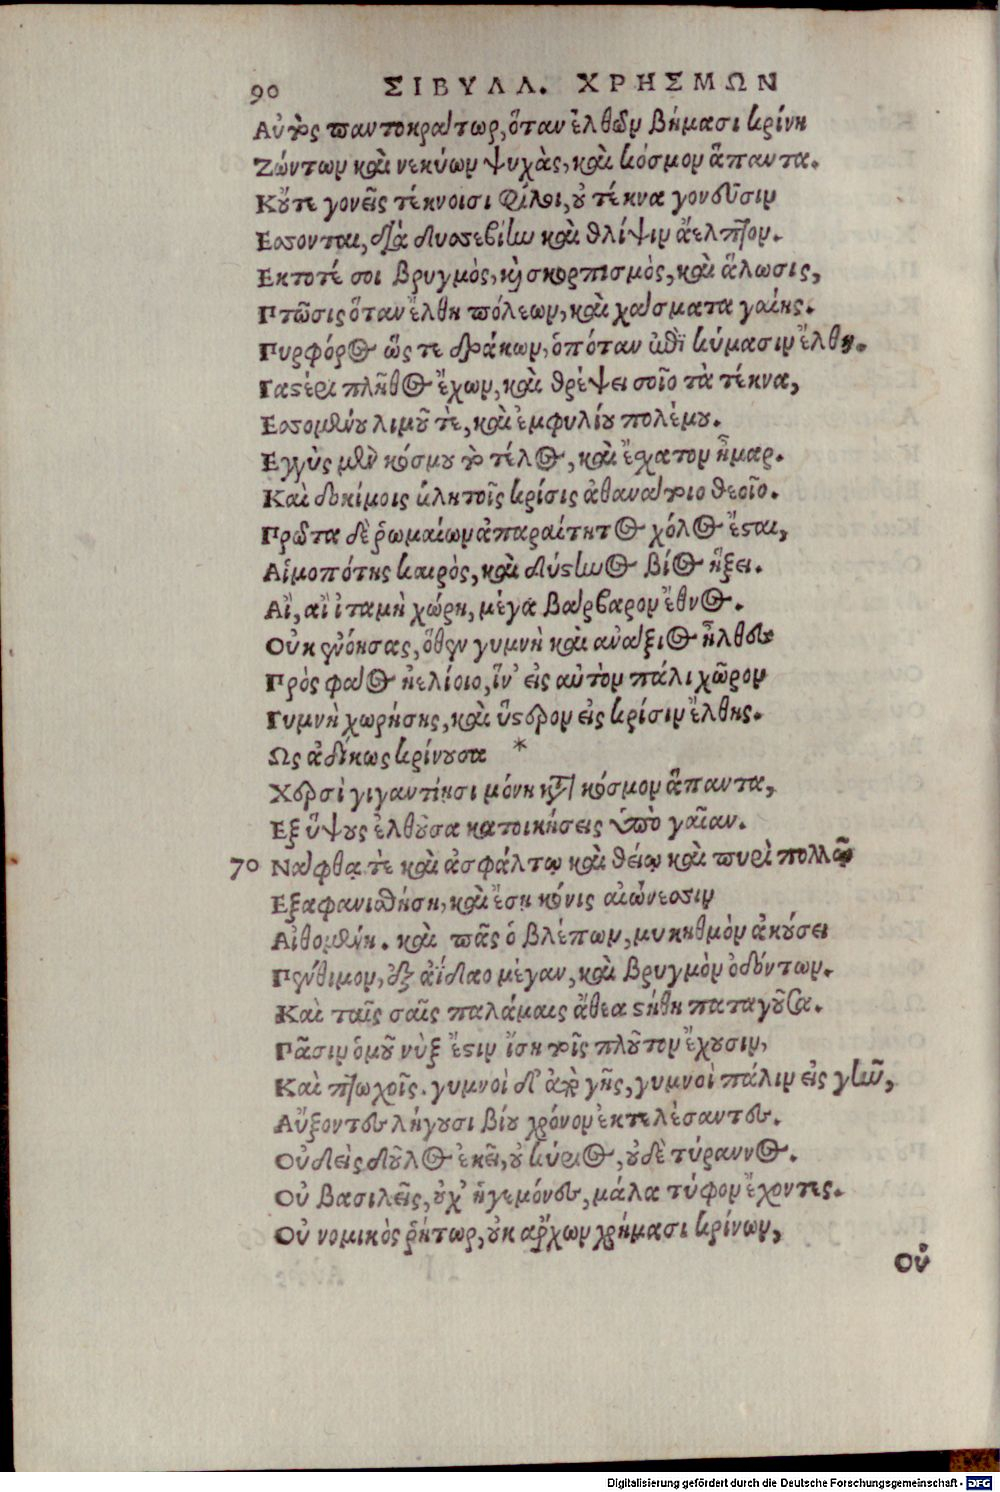 90 ΣΙΒΥΛΛ. ΧΡΗΣΜΩΝ
Αὐτὸς παντοκράτωρ, ὅταν ἐλθὼν βήμασι κρίνῃ
Ζώντων καὶ νεκύων ψυχὰς, καὶ κόσμον ἅπαντα.
Κοὔτε γονεῖς τέκνοισι φίλοι, οὐ τέκνα γονεῦσιν
Εσσονται, διὰ δυσσεβίην καὶ θλίψιν ἄελπτον.
Εκτοτέ σοι βρυγμὸς, καὶ σκορπισμὸς, καὶ ἅλωσις,
Πτῶσις ὅταν ἔλθῃ πόλεων, καὶ χάσματα γαίης.
Πυρφόρος ὥς τε δράκων, ὁπόταν ἐπὶ κύμασιν ἔλθῃ.
Γαστέρι πλῆθος ἔχων, καὶ θρέψει σοῖο τὰ τέκνα,
Εσσομένου λιμοῦ τὲ, καὶ ἐμφυλίου πολέμου.
Εγγὺς μὲν κόσμου τὸ τέλος, καὶ ἔσχατον ἦμαρ.
Καὶ δοκίμοις κλητοῖς κρίσις ἀθανάτοιο θεοῖο.
Πρῶτα δὲ ῥωμαίων ἀπαραίτητος χόλος ἔσται,
Αἱμοπότης καιρὸς, καὶ δύστηνος βίος ἥξει.
Αἲ, αἲ ἰταμὴ χώρη, μέγα βάρβαρον ἔθνος.
Οὐκ ἐνόησας, ὅθεν γυμνὴ καὶ ἀνάξιος ἦλθες
Πρὸς φάος ἠελίοιο, ἵν' εἰς αὐτὸν πάλι χῶρον
Γυμνὴ χωρήσῃς, καὶ ὕστερον εἰς κρίσιν ἔλθῃς.
Ως ἀδίκως κρίνουσα *
Χερσὶ γιγαντίῃσι μόνη κατὰ κόσμον ἅπαντα,
Εξ ὕψους ἐλθοῦσα κατοικήσεις ὑπὸ γαῖαν.
70 Νάφθᾳ τὲ καὶ ἀσφάλτῳ καὶ θείῳ καὶ πυρὶ πολλῷ
Εξαφανισθήσῃ, καὶ ἔσῃ κόνις αἰώνεσσιν
Αἰθομένη. καὶ πᾶς ὁ βλέπων, μυκηθμὸν ἀκούσει
Πένθιμον, ἐξ ἀΐδαο μέγαν, καὶ βρυγμὸν ὀδόντων.
Καὶ ταῖς σαῖς παλάμαις ἄθεα στήθη παταγοῦσα.
Πᾶσιν ὁμοῦ νὺξ ἔστιν ἴση τοῖς πλοῦτον ἔχουσιν,
Καὶ πτωχοῖς. γυμνοὶ δ' ἀπὸ γῆς, γυμνοὶ πάλιν εἰς γῆν,
Αὔξοντες λήγουσι βίου χρόνον ἐκτελέσαντες.
Οὐδεὶς δοῦλος ἐκεῖ, οὐ κύριος, οὐδὲ τύραννος.
Οὐ βασιλεῖς, οὐχ' ἡγεμόνες, μάλα τύφον ἔχοντες.
Οὐ νομικὸς ῥήτωρ, οὐκ ἄρχων χρήμασι κρίνων,
Οὐ
Digitalisierung gefördert durch die Deutsche Forschungsgemeinschaft - DFG